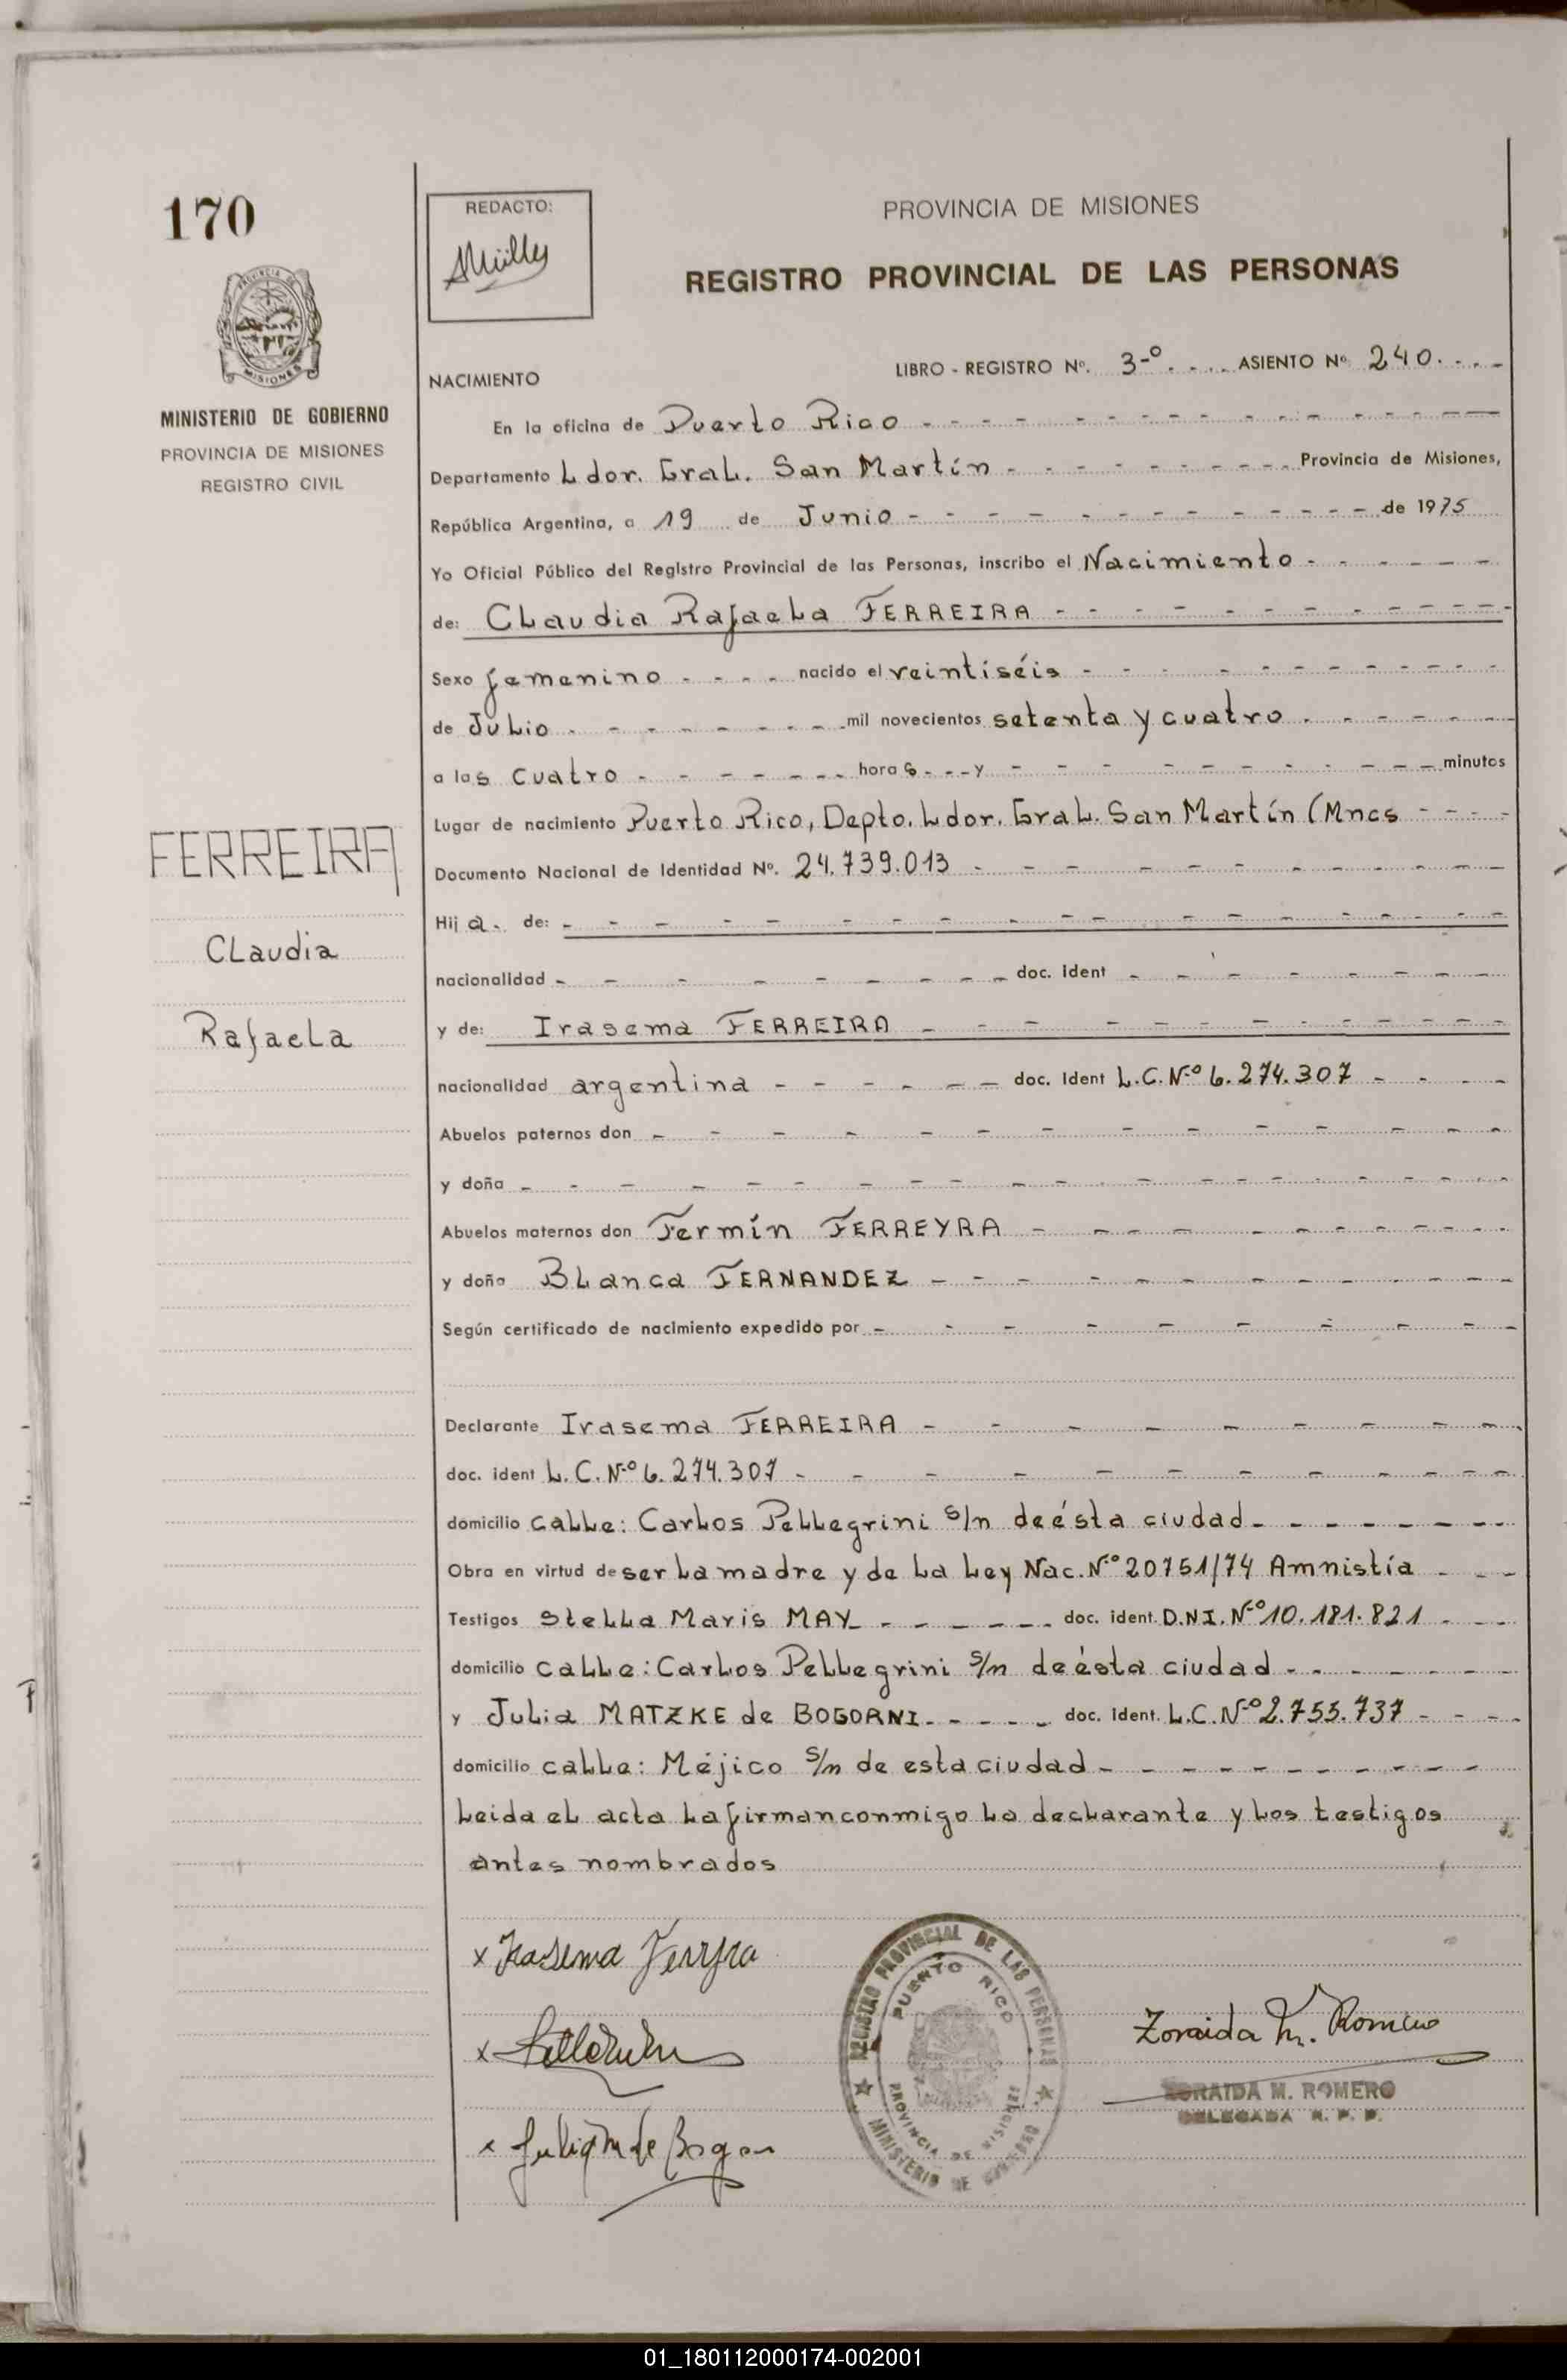 170
REDACTO:
PROVINCIA DE MISIONES
REGISTRO PROVINCIAL DE LAS PERSONAS
MISIONES
MINISTERIO DE GOBIERNO
PROVINCIA DE MISIONES
REGISTRO CIVIL
LIBRO - REGISTRO Nº. 3-º ASIENTO Nº 240
NACIMIENTO
En la oficina de Puerto Rico
Departamento Ldor. Gral. San Martín Provincia de Misiones,
República Argentina, a 19 de Junio de 1975
Yo Oficial Público del Registro Provincial de las Personas, inscribo el Nacimiento
de: Claudia Rafaela FERREIRA
Sexo femenino nacido el veintiséis
de Julio mil novecientos setenta y cuatro
a las cuatro horas y minutos
Lugar de nacimiento Puerto Rico, Depto. Ldor. Gral. San Martín (Mnes
Documento Nacional de Identidad Nº. 24.739.013
Hija de:
nacionalidad doc. ident
y de: Irasema FERREIRA
nacionalidad argentina doc. ident L.C.Nº 6.274.307
Abuelos paternos don
y doña
Abuelos maternos don Fermín FERREYRA
y doña Blanca FERNANDEZ
Según certificado de nacimiento expedido por
Declarante Irasema FERREIRA
doc. ident L.C.Nº 6.274.307
domicilio calle: Carlos Pellegrini s/n de ésta ciudad
Obra en virtud de ser la madre y de la Ley Nac. Nº 20751/74 Amnistía
Testigos Stella Maris MAY doc. ident. D.N.I. Nº 10.181.821
domicilio calle: Carlos Pellegrini s/n de ésta ciudad
y Julia MATZKE de BOGORNI doc. ident. L.C.Nº 2.755.737
domicilio calle: Méjico s/n de esta ciudad
Leida el acta la firman conmigo la declarante y los testigos
antes nombrados
FERREIRA
Claudia
Rafaela
x Irasema Ferreyra
x
x Julia M de Bogor
REGISTRO PROVINCIAL DE LAS PERSONAS
PUERTO RICO
PROVINCIA DE MISIONES
MINISTERIO DE GOBIERNO
Zoraida M. Romero
ZORAIDA M. ROMERO
DELEGADA R. P. P.
01_180112000174-002001